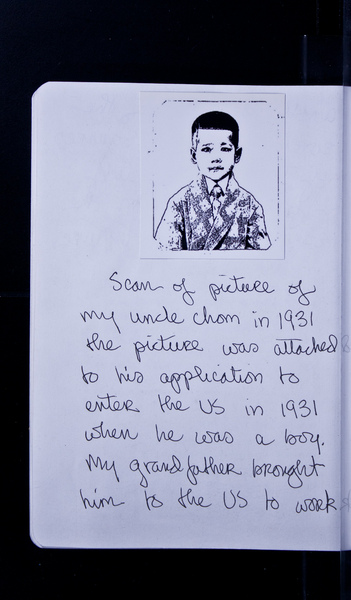 Scan of picture of
my uncle Chom in 1931
the picture was attached
to his application to
enter the US in 1931
when he was a boy.
My grandfather brought
him to the US to work